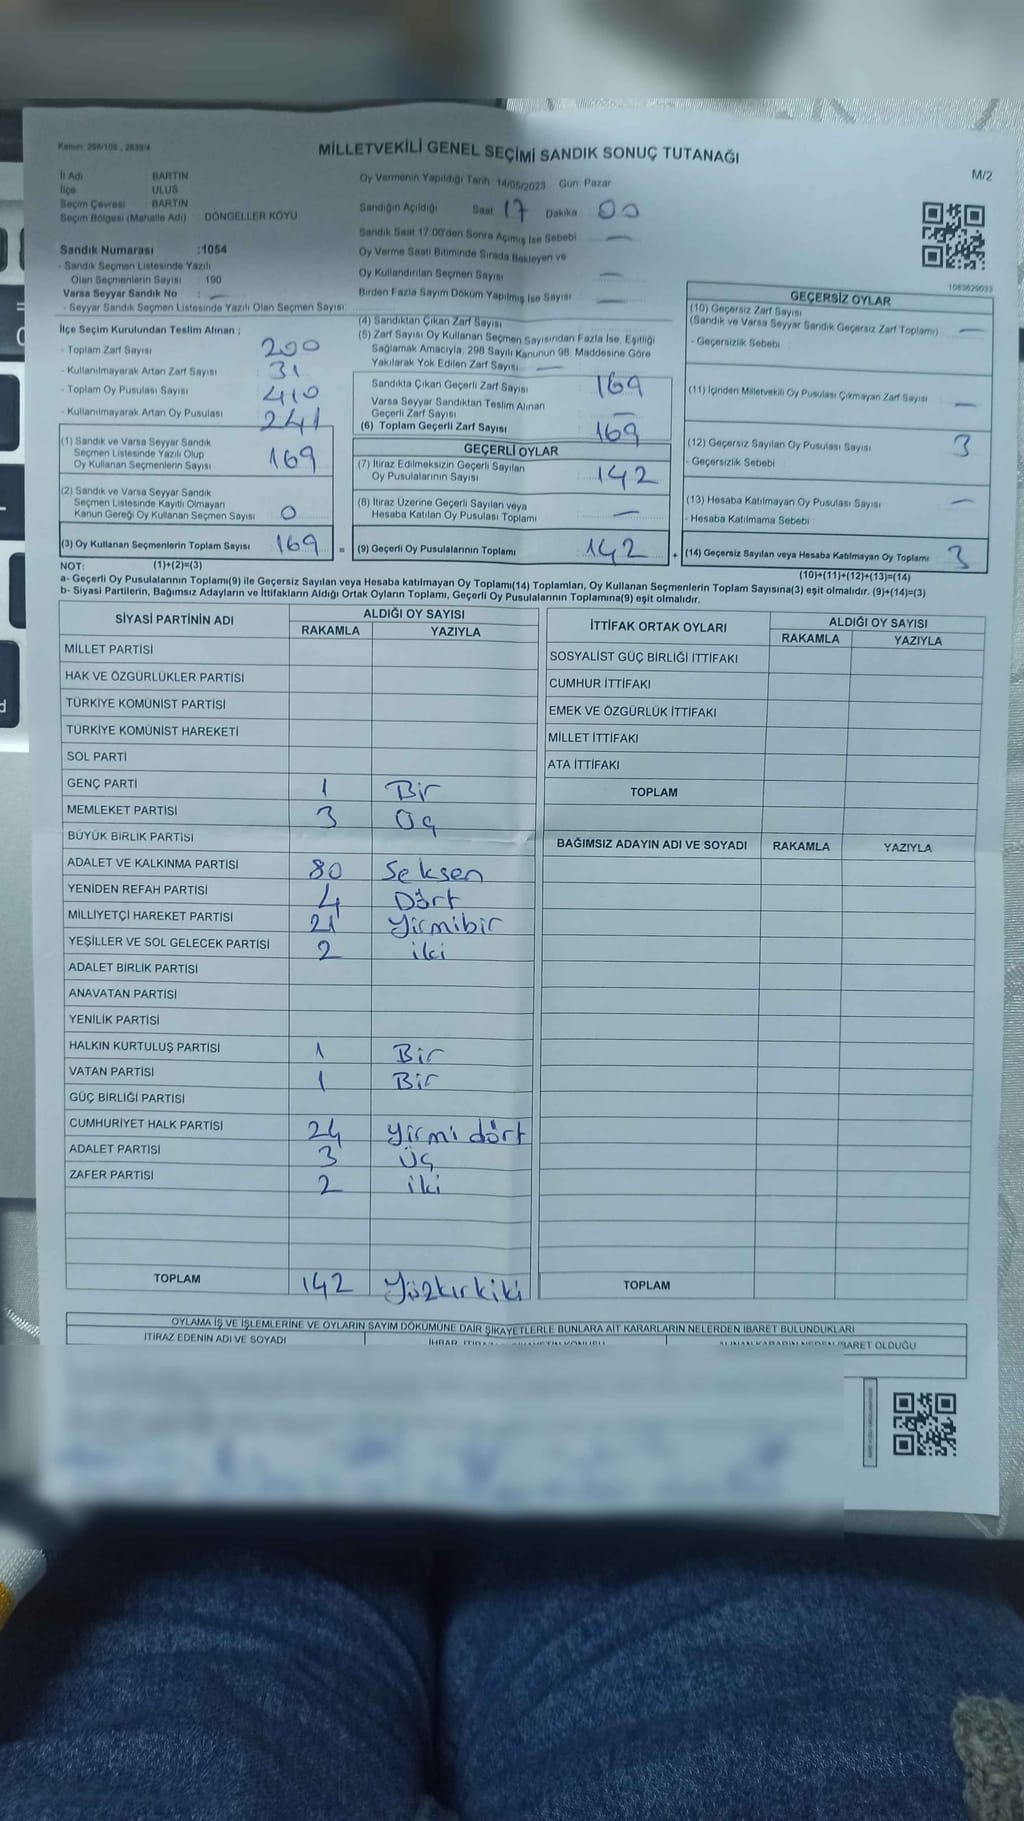 Kanun: 298/105 , 2839/4
MİLLETVEKİLİ GENEL SEÇİMİ SANDIK SONUÇ TUTANAĞI
M/2
İl Adı BARTIN
İlçe ULUS
Seçim Çevresi BARTIN
Seçim Bölgesi (Mahalle Adı) : DÖNGELLER KÖYÜ
Sandık Numarası :1054
- Sandık Seçmen Listesinde Yazılı
Olan Seçmenlerin Sayısı : 190
Varsa Seyyar Sandık No : —
- Seyyar Sandık Seçmen Listesinde Yazılı Olan Seçmen Sayısı:
İlçe Seçim Kurulundan Teslim Alınan ;
- Toplam Zarf Sayısı 200
- Kullanılmayarak Artan Zarf Sayısı 31
- Toplam Oy Pusulası Sayısı 410
- Kullanılmayarak Artan Oy Pusulası 241
(1) Sandık ve Varsa Seyyar Sandık
Seçmen Listesinde Yazılı Olup
Oy Kullanan Seçmenlerin Sayısı 169
(2) Sandık ve Varsa Seyyar Sandık
Seçmen Listesinde Kayıtlı Olmayan
Kanun Gereği Oy Kullanan Seçmen Sayısı 0
(3) Oy Kullanan Seçmenlerin Toplam Sayısı 169 =
Oy Vermenin Yapıldığı Tarih: 14/05/2023 Gün: Pazar
Sandığın Açıldığı Saat 17 Dakika 00
Sandık Saat 17.00'den Sonra Açılmış İse Sebebi —
Oy Verme Saati Bitiminde Sırada Bekleyen ve
Oy Kullandırılan Seçmen Sayısı —
Birden Fazla Sayım Döküm Yapılmış İse Sayısı —
(4) Sandıktan Çıkan Zarf Sayısı
(5) Zarf Sayısı Oy Kullanan Seçmen Sayısından Fazla İse, Eşitliği
Sağlamak Amacıyla, 298 Sayılı Kanunun 98. Maddesine Göre
Yakılarak Yok Edilen Zarf Sayısı —
Sandıkta Çıkan Geçerli Zarf Sayısı 169
Varsa Seyyar Sandıktan Teslim Alınan
Geçerli Zarf Sayısı —
(6) Toplam Geçerli Zarf Sayısı 169
GEÇERLİ OYLAR
(7) İtiraz Edilmeksizin Geçerli Sayılan
Oy Pusulalarının Sayısı 142
(8) İtiraz Üzerine Geçerli Sayılan veya
Hesaba Katılan Oy Pusulası Toplamı —
(9) Geçerli Oy Pusulalarının Toplamı 142 +
1083629033
GEÇERSİZ OYLAR
(10) Geçersiz Zarf Sayısı
(Sandık ve Varsa Seyyar Sandık Geçersiz Zarf Toplamı) —
- Geçersizlik Sebebi
(11) İçinden Milletvekili Oy Pusulası Çıkmayan Zarf Sayısı —
(12) Geçersiz Sayılan Oy Pusulası Sayısı 3
- Geçersizlik Sebebi
(13) Hesaba Katılmayan Oy Pusulası Sayısı —
- Hesaba Katılmama Sebebi
(14) Geçersiz Sayılan veya Hesaba Katılmayan Oy Toplamı 3
NOT: (1)+(2)=(3) (10)+(11)+(12)+(13)=(14)
a- Geçerli Oy Pusulalarının Toplamı(9) ile Geçersiz Sayılan veya Hesaba katılmayan Oy Toplamı(14) Toplamları, Oy Kullanan Seçmenlerin Toplam Sayısına(3) eşit olmalıdır. (9)+(14)=(3)
b- Siyasi Partilerin, Bağımsız Adayların ve İttifakların Aldığı Ortak Oyların Toplamı, Geçerli Oy Pusulalarının Toplamına(9) eşit olmalıdır.
SİYASİ PARTİNİN ADI ALDIĞI OY SAYISI
RAKAMLA YAZIYLA
MİLLET PARTİSİ
HAK VE ÖZGÜRLÜKLER PARTİSİ
TÜRKİYE KOMÜNİST PARTİSİ
TÜRKİYE KOMÜNİST HAREKETİ
SOL PARTİ
GENÇ PARTİ 1 Bir
MEMLEKET PARTİSİ 3 Üç
BÜYÜK BİRLİK PARTİSİ
ADALET VE KALKINMA PARTİSİ 80 Seksen
YENİDEN REFAH PARTİSİ 4 Dört
MİLLİYETÇİ HAREKET PARTİSİ 21 Yirmibir
YEŞİLLER VE SOL GELECEK PARTİSİ 2 iki
ADALET BİRLİK PARTİSİ
ANAVATAN PARTİSİ
YENİLİK PARTİSİ
HALKIN KURTULUŞ PARTİSİ 1 Bir
VATAN PARTİSİ 1 Bir
GÜÇ BİRLİĞİ PARTİSİ
CUMHURİYET HALK PARTİSİ 24 Yirmi dört
ADALET PARTİSİ 3 Üç
ZAFER PARTİSİ 2 iki
TOPLAM 142 Yüzkırkiki
İTTİFAK ORTAK OYLARI ALDIĞI OY SAYISI
RAKAMLA YAZIYLA
SOSYALİST GÜÇ BİRLİĞİ İTTİFAKI
CUMHUR İTTİFAKI
EMEK VE ÖZGÜRLÜK İTTİFAKI
MİLLET İTTİFAKI
ATA İTTİFAKI
TOPLAM
BAĞIMSIZ ADAYIN ADI VE SOYADI RAKAMLA YAZIYLA
TOPLAM
OYLAMA İŞ VE İŞLEMLERİNE VE OYLARIN SAYIM DÖKÜMÜNE DAİR ŞİKAYETLERLE BUNLARA AİT KARARLARIN NELERDEN İBARET BULUNDUKLARI
İTİRAZ EDENİN ADI VE SOYADI
OLDUĞU